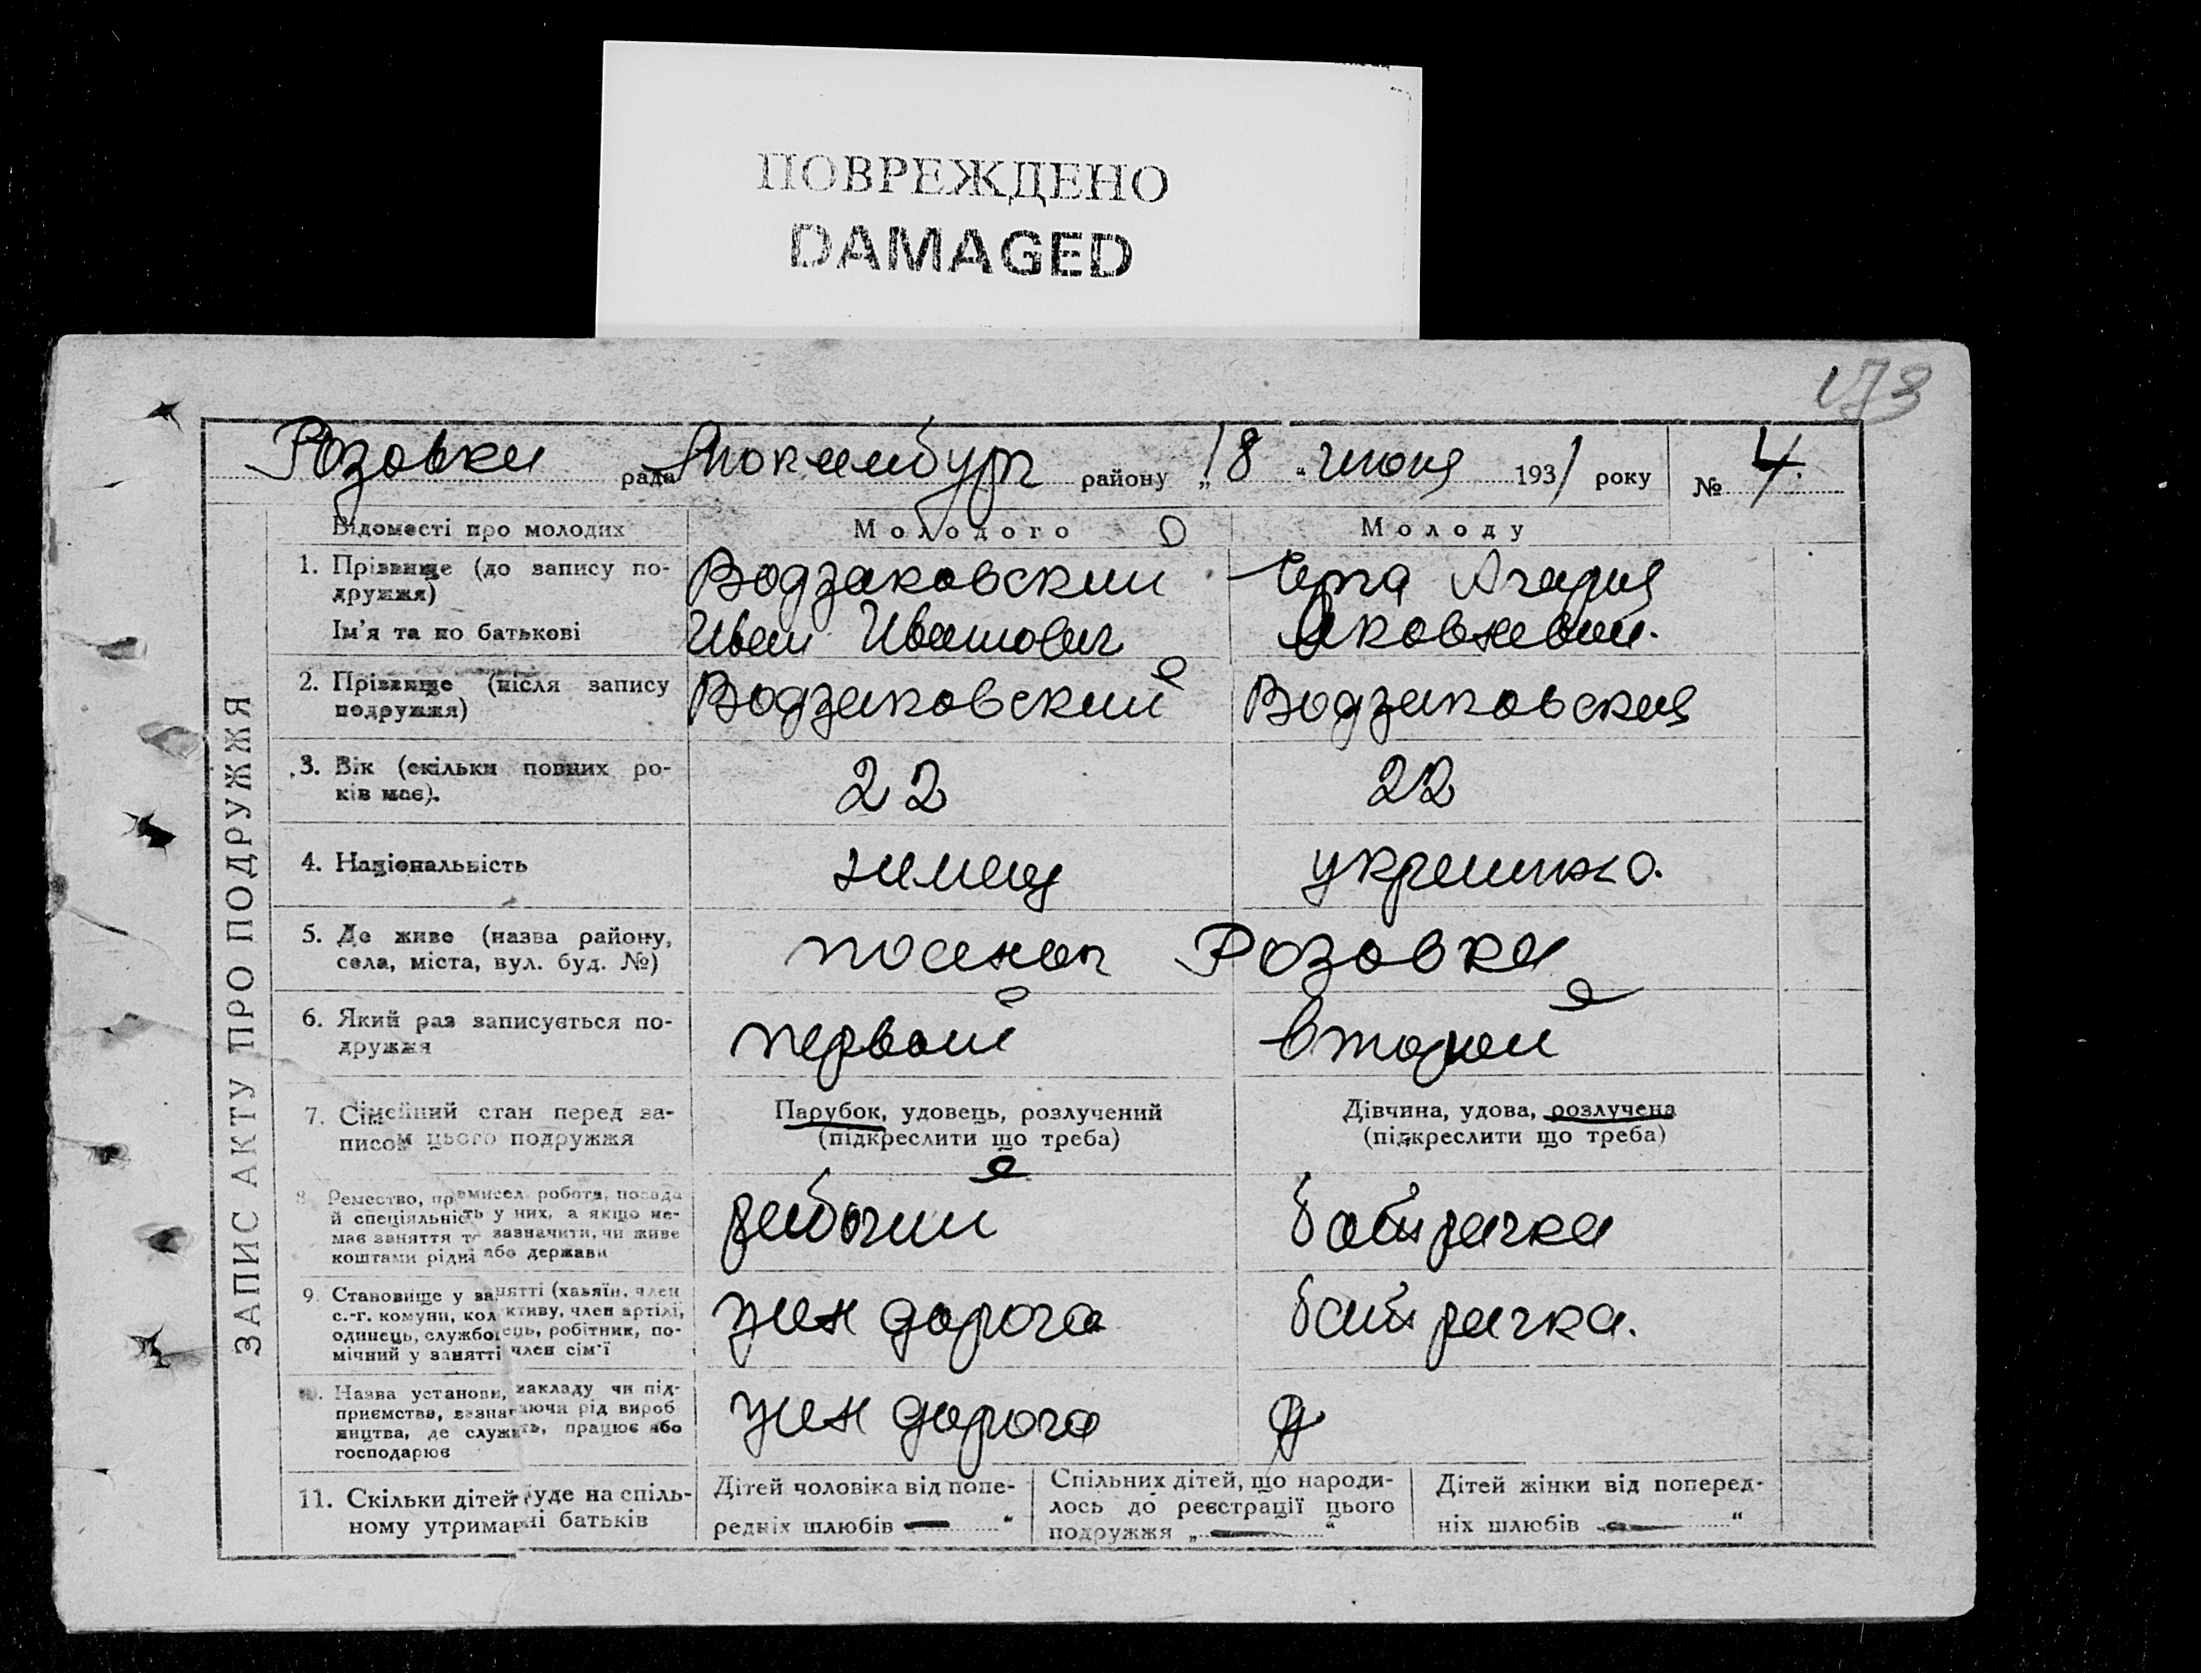 ПОВРЕЖДЕНО
DAMAGED
173
Розовка рада района „18“ июня 1931 року № 4
ЗАПИС АКТУ ПРО ПОДРУЖЖЯ
Відомості про молодих Молодого Молоду
1. Прізвище (до запису по-
дружжя)
Водзаковский
Ім'я та по батькові
Иван Иванович Яковлевна.
2. Прізвище (після запису
подружжя)
Водзаковский Водзаковская
3. Вік (скільки повних ро-
ків має).
22 22
4. Національність
немец украинка.
5. Де живе (назва району,
села, міста, вул. буд. №)
Розовка
6. Який раз записується по-
дружжя
первый второй
7. Сімейний стан перед за-
писом цього подружжя
Парубок, удовець, розлучений
(підкреслити що треба)
Дівчина, удова, розлучена
(підкреслити що треба)
8. Ремество, промисел, робота, посада
й спеціяльність у них, а якщо не-
має заняття то зазначити, чи живе
коштами рідні або держави
рабочий батрачка
9. Становище у занятті (хазяїн, член
с.-г. комуни, колективу, член артілі,
одинець, службовець, робітник, по-
мічний у занятті член сім'ї
жел дорога батрачка.
10. Назва установи, закладу чи під-
приємства, зазначаючи рід вироб
ництва, де служить, працює або
господарює
жел дорога
11. Скільки дітей буде на спіль-
ному утриманні батьків
Дітей чоловіка від попе-
редніх шлюбів — “
Спільних дітей, що народи-
лось до реєстрації цього
подружжя „ — “
Дітей жінки від поперед-
ніх шлюбів — “